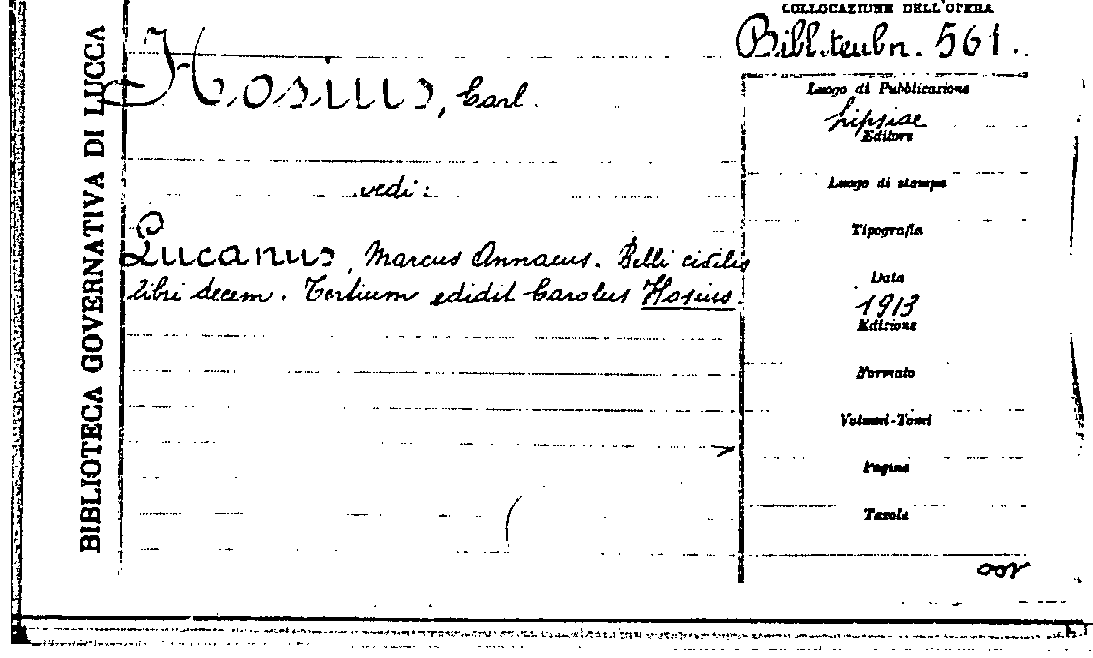 COLLOCAZIONE DELL'OPERA
Bibl. teubn. 561.
BIBLIOTECA GOVERNATIVA DI LUCCA
Hosius, Carl.
vedi:
Lucanus, Marcus Annaeus. Belli civilis
libri decem. Tertium edidit Carolus Hosius.
Luogo di Pubblicazione
Lipsiae
Editore
Luogo di stampa
Tipografia
Data
1913
Edizione
Formato
Volumi-Tomi
Pagine
Tavole